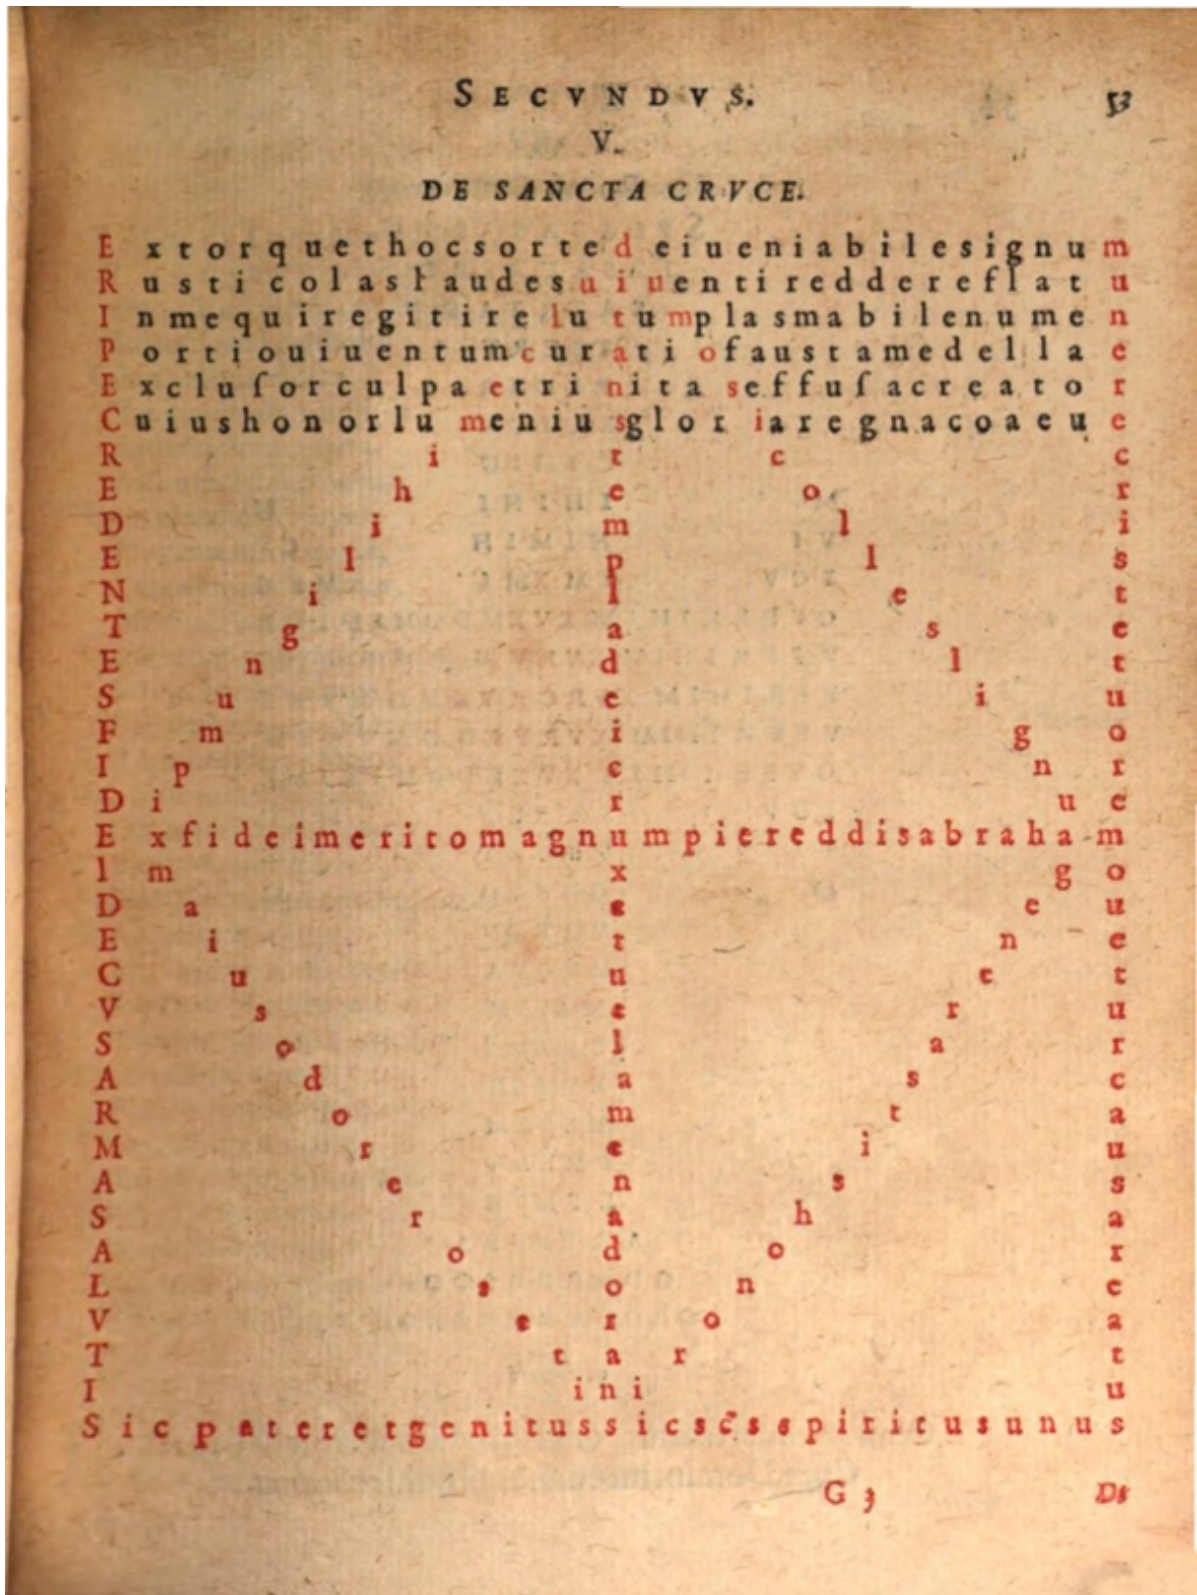 SECVNDVS. 53
V.
DE SANCTA CRVCE.
E xtorquethocsortedeiueniabilesignum
R usticolaslaudesuiuentireddereflatu
I nmequiregitirelutumplasmabilenumen
P ortiouiuentumcuratiofaustamedellae
E xcluſorculpaetrinitaseffuſacreator
C uiushonorlumeniusgloriaregnacoaeue
R i t c c
E h e o r
D i m l i
E l p l s
N i l e t
T g a s e
E n d l t
S u e i u
F m i g o
I p c n r
D i r u e
E xfideimeritomagnumpiereddisabraham
I m x g o
D a e e u
E i t n e
C u u e t
V s e r u
S o l a r
A d a s c
R o m t a
M r e i u
A e n s s
S r a h a
A o d o r
L s o n e
V e r o a
T t a r t
I i n i u
S icpateretgenitussicscs̄spiritusunus
G 3 De